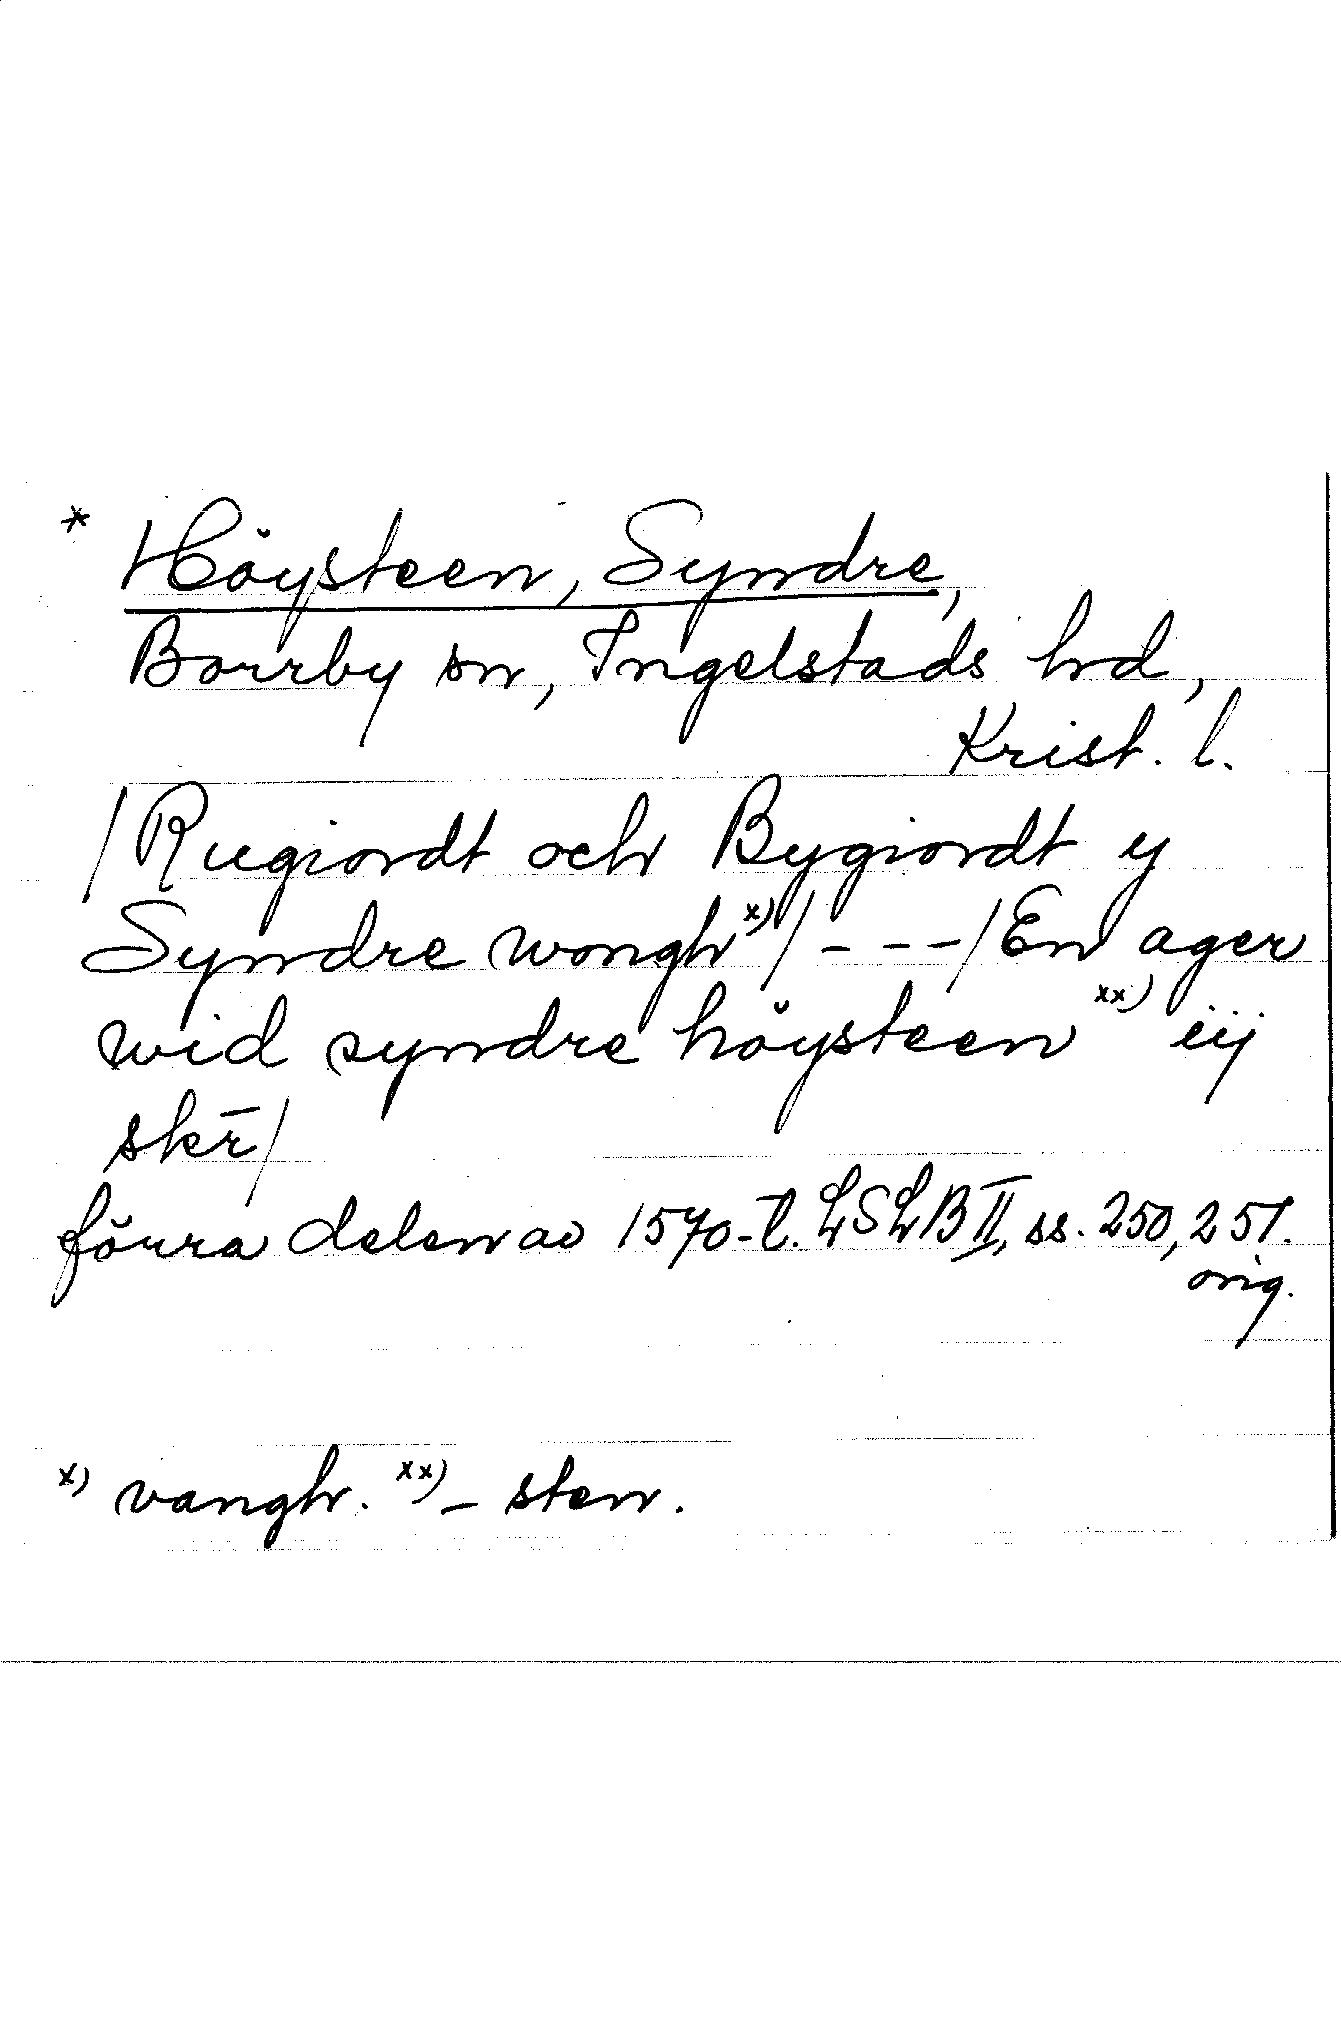 * Höysteen, Syndre,
Borrby sn, Ingelstads hd,
Krist. l.
/Rugiordt och Bygiordt y
Syndre wongh x)/ - - - /En ager
wid syndre höysteen xx) iij
skr̄/
förra delen av 1570-t. LSLB II, ss. 250, 251.
orig.
x) vangh. xx) - sten.